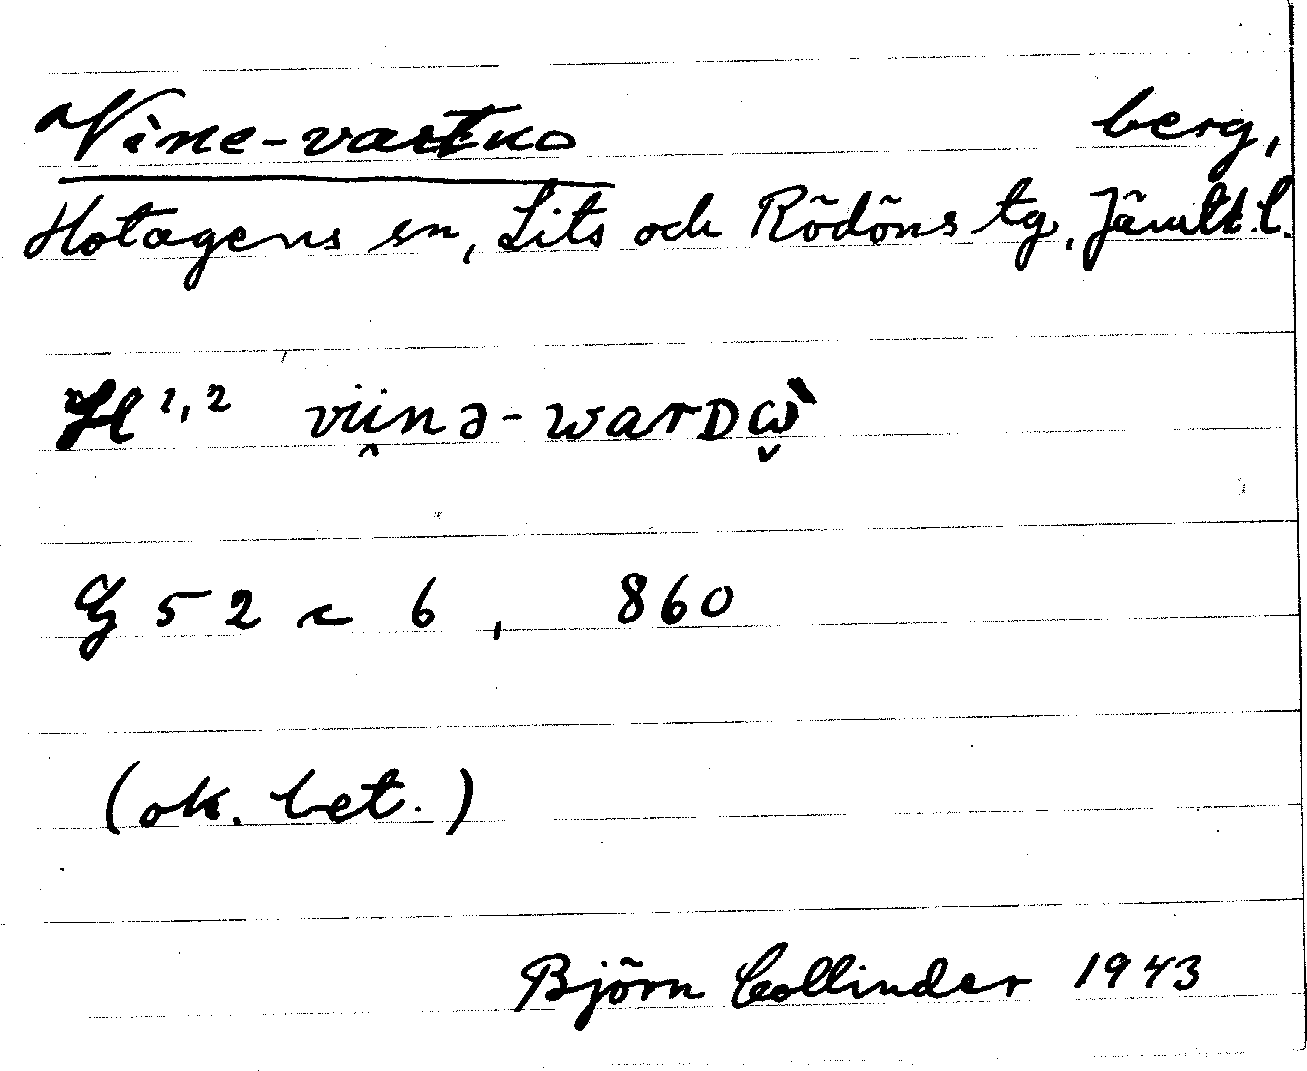 Vine-vartuo berg,
Hotagens sn, Lits och Rödöns tg, Jämtl. l.
H 1,2 viinə-warDὼ
G 52 c 6, 860
(ok. bet.)
Björn Collinder 1943